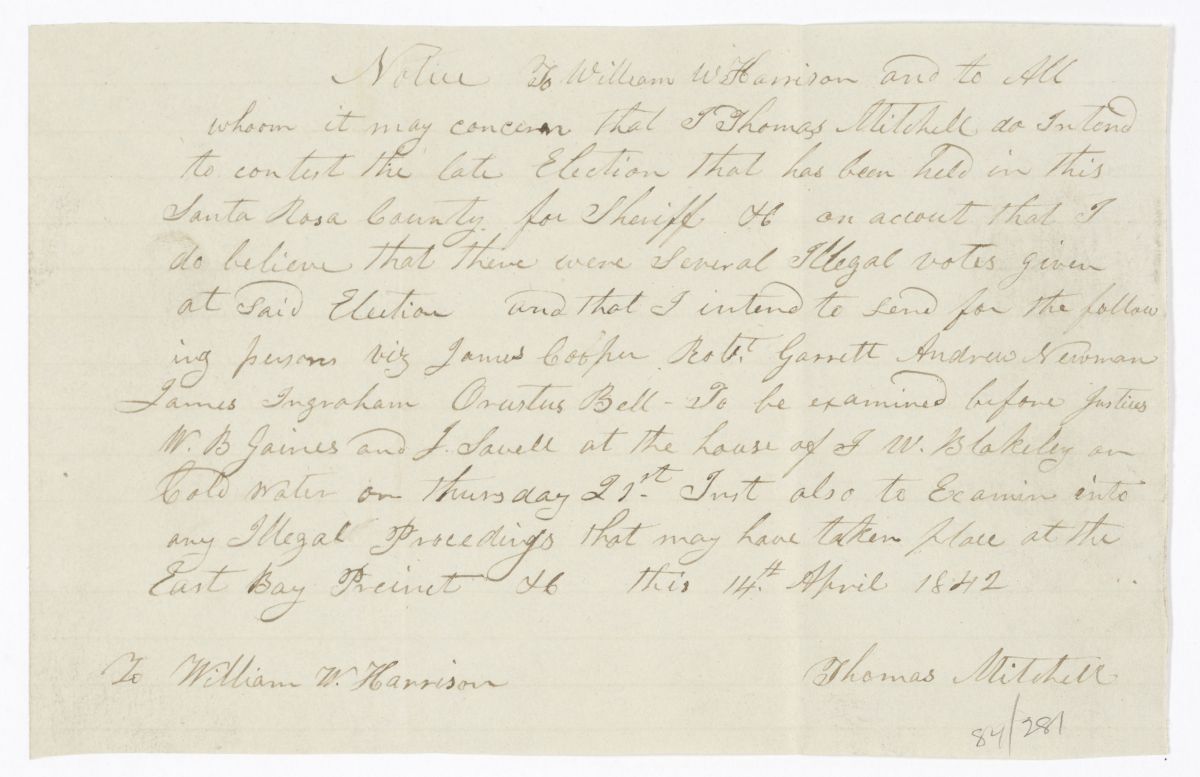 Notice To William W Harrison and to All
whoom it may concern that I Thomas Mitchell do Intend
to contest the late Election that has been held in this
Santa Rosa County for Sheriff &c on accout that I
do believe that there were Several Illegal votes given
at said Election and that I intend to send for the follow
ing persons viz James Cooper Robt. Garrett Andrew Newman
James Ingraham Orustus Bell - To be examined before Justices
W. B Gaines and J. Savell at the house of J W. Blakeley on
Cold Water on thursday 21st. Inst also to Examin into
any Illegal Proceedings that may have taken place at the
East Bay Precinct &c this 14th. April 1842
To William W. Harrison
Thomas Mitchell
84/281